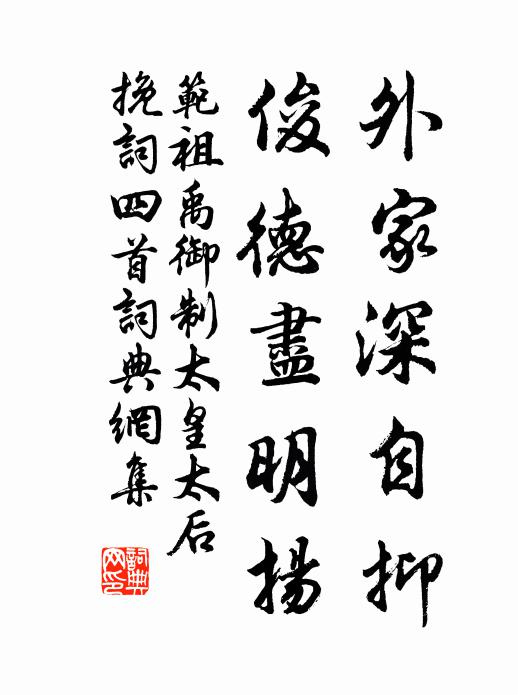 外家深自抑
俊德盡明揚
範祖禹御制太皇太后
挽詞四首詞典網集
詞典网印